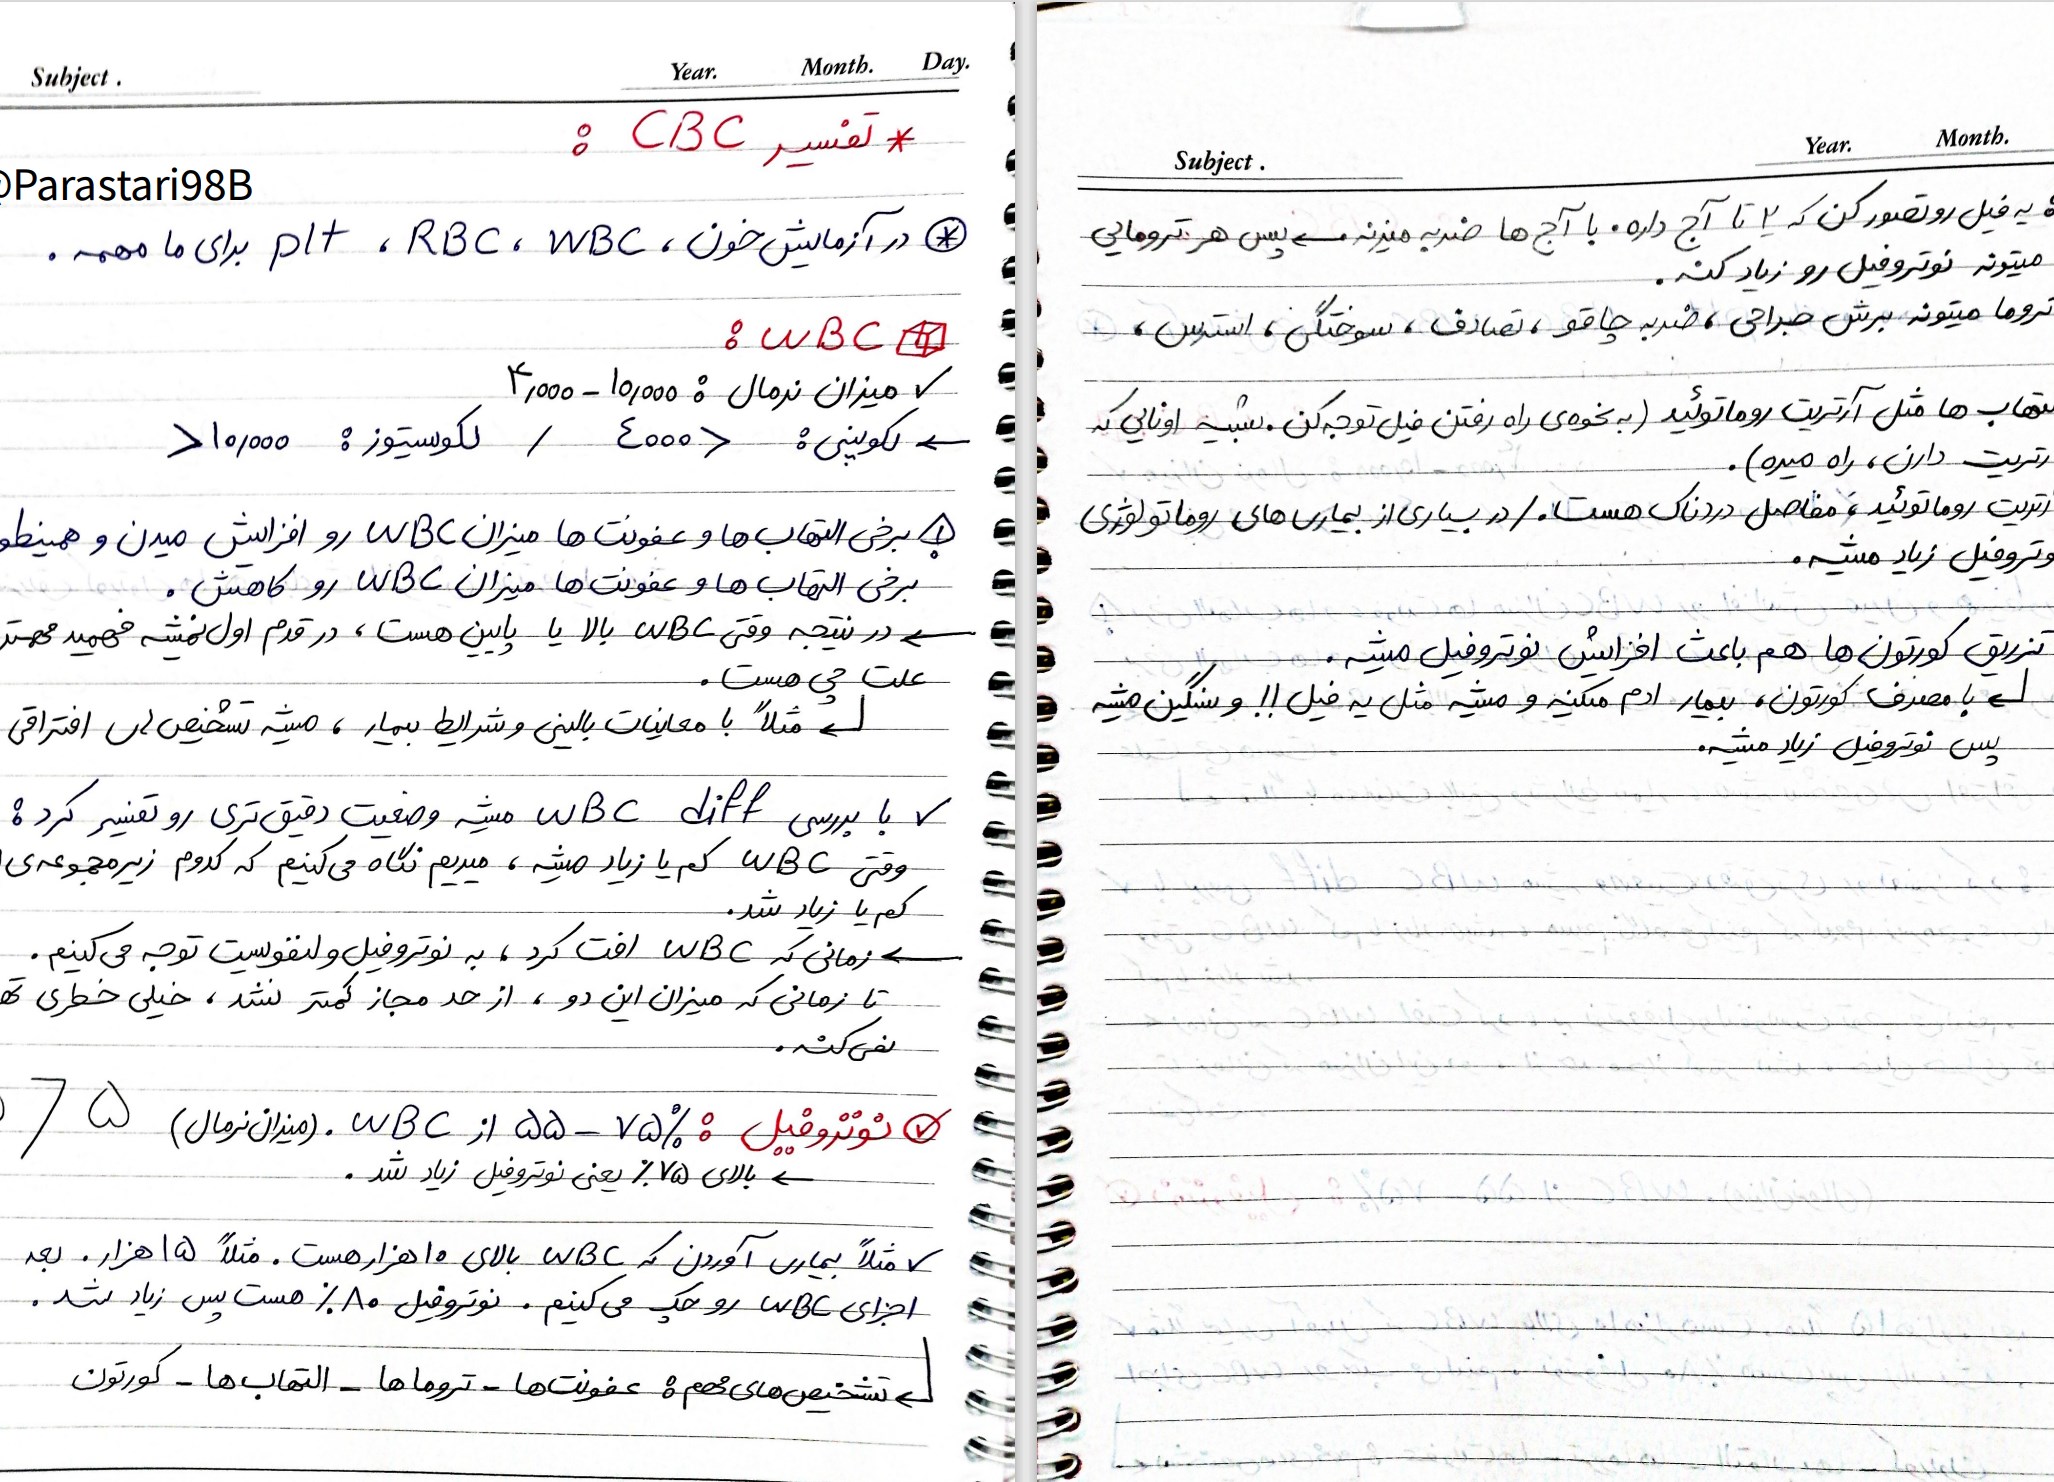 Subject .
Year. Month. Day.
* تفسیر CBC :
@Parastari98B
در آزمایش خون ، RBC ، WBC ، plt برای ما مهمه .
WBC :
✓ میزان نرمال : ۱۰,۰۰۰ – ۴,۰۰۰
← لکوپنی : < ٤۰۰۰ / لکوسیتوز : ۱۰,۰۰۰<
برخی التهاب ها و عفونت ها میزان WBC رو افزایش میدن و همینطو
برخی التهاب ها و عفونت ها میزان WBC رو کاهش .
← در نتیجه وقتی WBC بالا یا پایین هست ، در قدم اول نمیشه فهمید
علت چی هست .
مثلاً با معاینات بالینی و شرایط بیمار ، میشه تشخیص افتراقی
✓ با بررسی WBC diff میشه وضعیت دقیق تری رو تفسیر کرد :
وقتی WBC کم یا زیاد میشه ، میریم نگاه می کنیم که کدوم زیرمجموعه ی
کم یا زیاد شد.
← زمانی که WBC افت کرد ، به نوتروفیل و لنفوسیت توجه می کینم .
تا زمانی که میزان این دو ، از حد مجاز کمتر نشد ، خیلی خطری
نمی کنه .
نوتروفیل : ۷۵% – ۵۵ از WBC . (میزان نرمال)
← بالای ۷۵٪ یعنی نوتروفیل زیاد شد .
✓ مثلاً بیماری آوردن که WBC بالای ۱۰ هزار هست . مثلاً ۱۵ هزار . بعد
اجزای WBC رو چک می کینم . نوتروفیل ۸۰٪ هست پس زیاد شد .
← تشخیص های مهم : عفونت ها – تروما ها – التهاب ها – کورتون
Subject .
Year. Month.
: یه فیل رو تصور کن که ۲ تا آج داره . با آج ها ضربه میزنه . ← پس هر ترومایی
میتونه نوتروفیل رو زیاد کنه .
تروما میتونه برش جراحی ، ضربه چاقو ، تصادف ، سوختگی ، استرس ،
تهاب ها مثل آرتریت روماتوئید (به نحوه ی راه رفتن فیل توجه کن . شبیه اونایی که
رتریت دارن ، راه میره) .
رتریت روماتوئید ، مفاصل دردناک هست . / در بسیاری از بیماری های روماتولوژی
وتروفیل زیاد میشه .
تزریق کورتون ها هم باعث افزایش نوتروفیل میشه .
با مصرف کورتون ، بیمار ادم میکنه و میشه مثل یه فیل !! و سنگین میشه
پس نوتروفیل زیاد میشه.